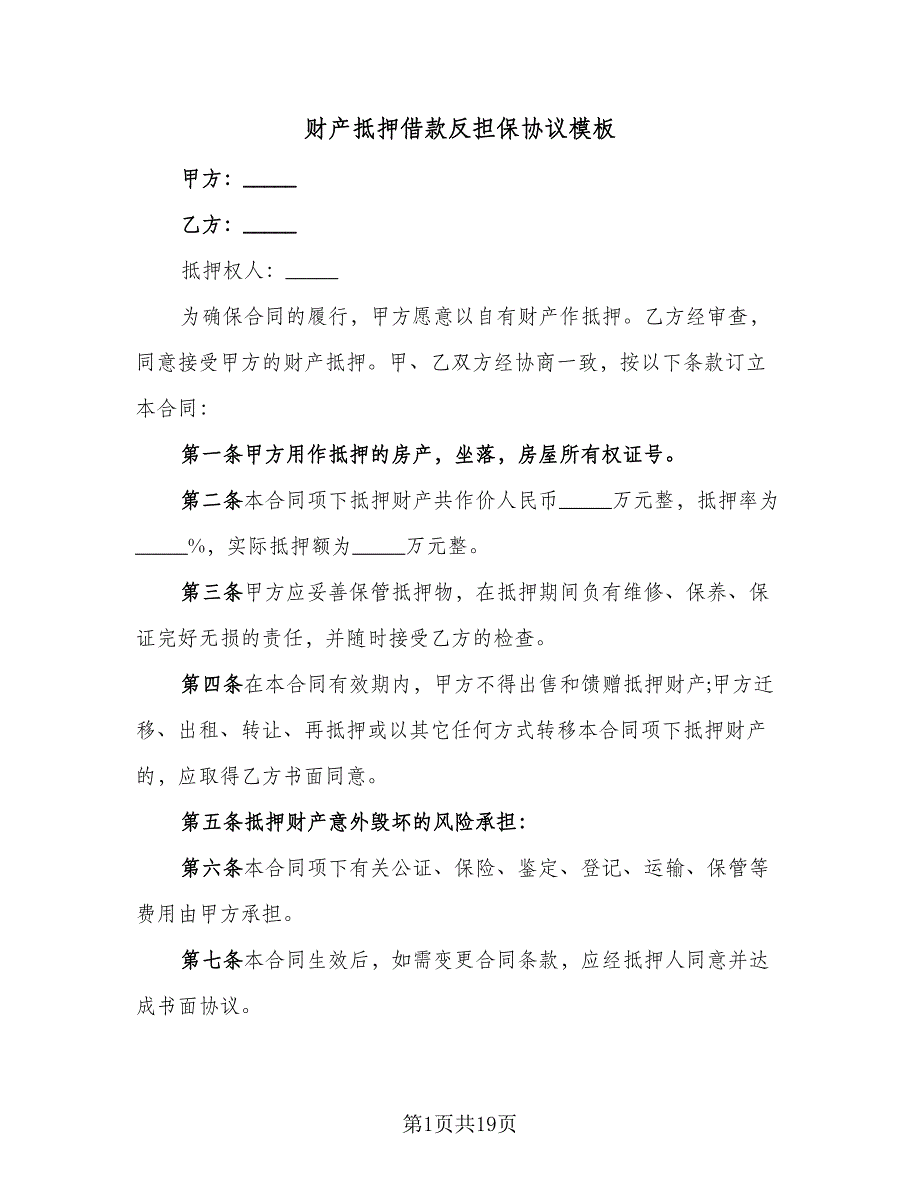 财产抵押借款反担保协议模板
甲方：_____
乙方：_____
抵押权人：_____
为确保合同的履行，甲方愿意以自有财产作抵押。乙方经审查，
同意接受甲方的财产抵押。甲、乙双方经协商一致，按以下条款订立
本合同：
第一条甲方用作抵押的房产，坐落，房屋所有权证号。
第二条本合同项下抵押财产共作价人民币_____万元整，抵押率为
_____%，实际抵押额为_____万元整。
第三条甲方应妥善保管抵押物，在抵押期间负有维修、保养、保
证完好无损的责任，并随时接受乙方的检查。
第四条在本合同有效期内，甲方不得出售和馈赠抵押财产;甲方迁
移、出租、转让、再抵押或以其它任何方式转移本合同项下抵押财产
的，应取得乙方书面同意。
第五条抵押财产意外毁坏的风险承担：
第六条本合同项下有关公证、保险、鉴定、登记、运输、保管等
费用由甲方承担。
第七条本合同生效后，如需变更合同条款，应经抵押人同意并达
成书面协议。
第1页共19页